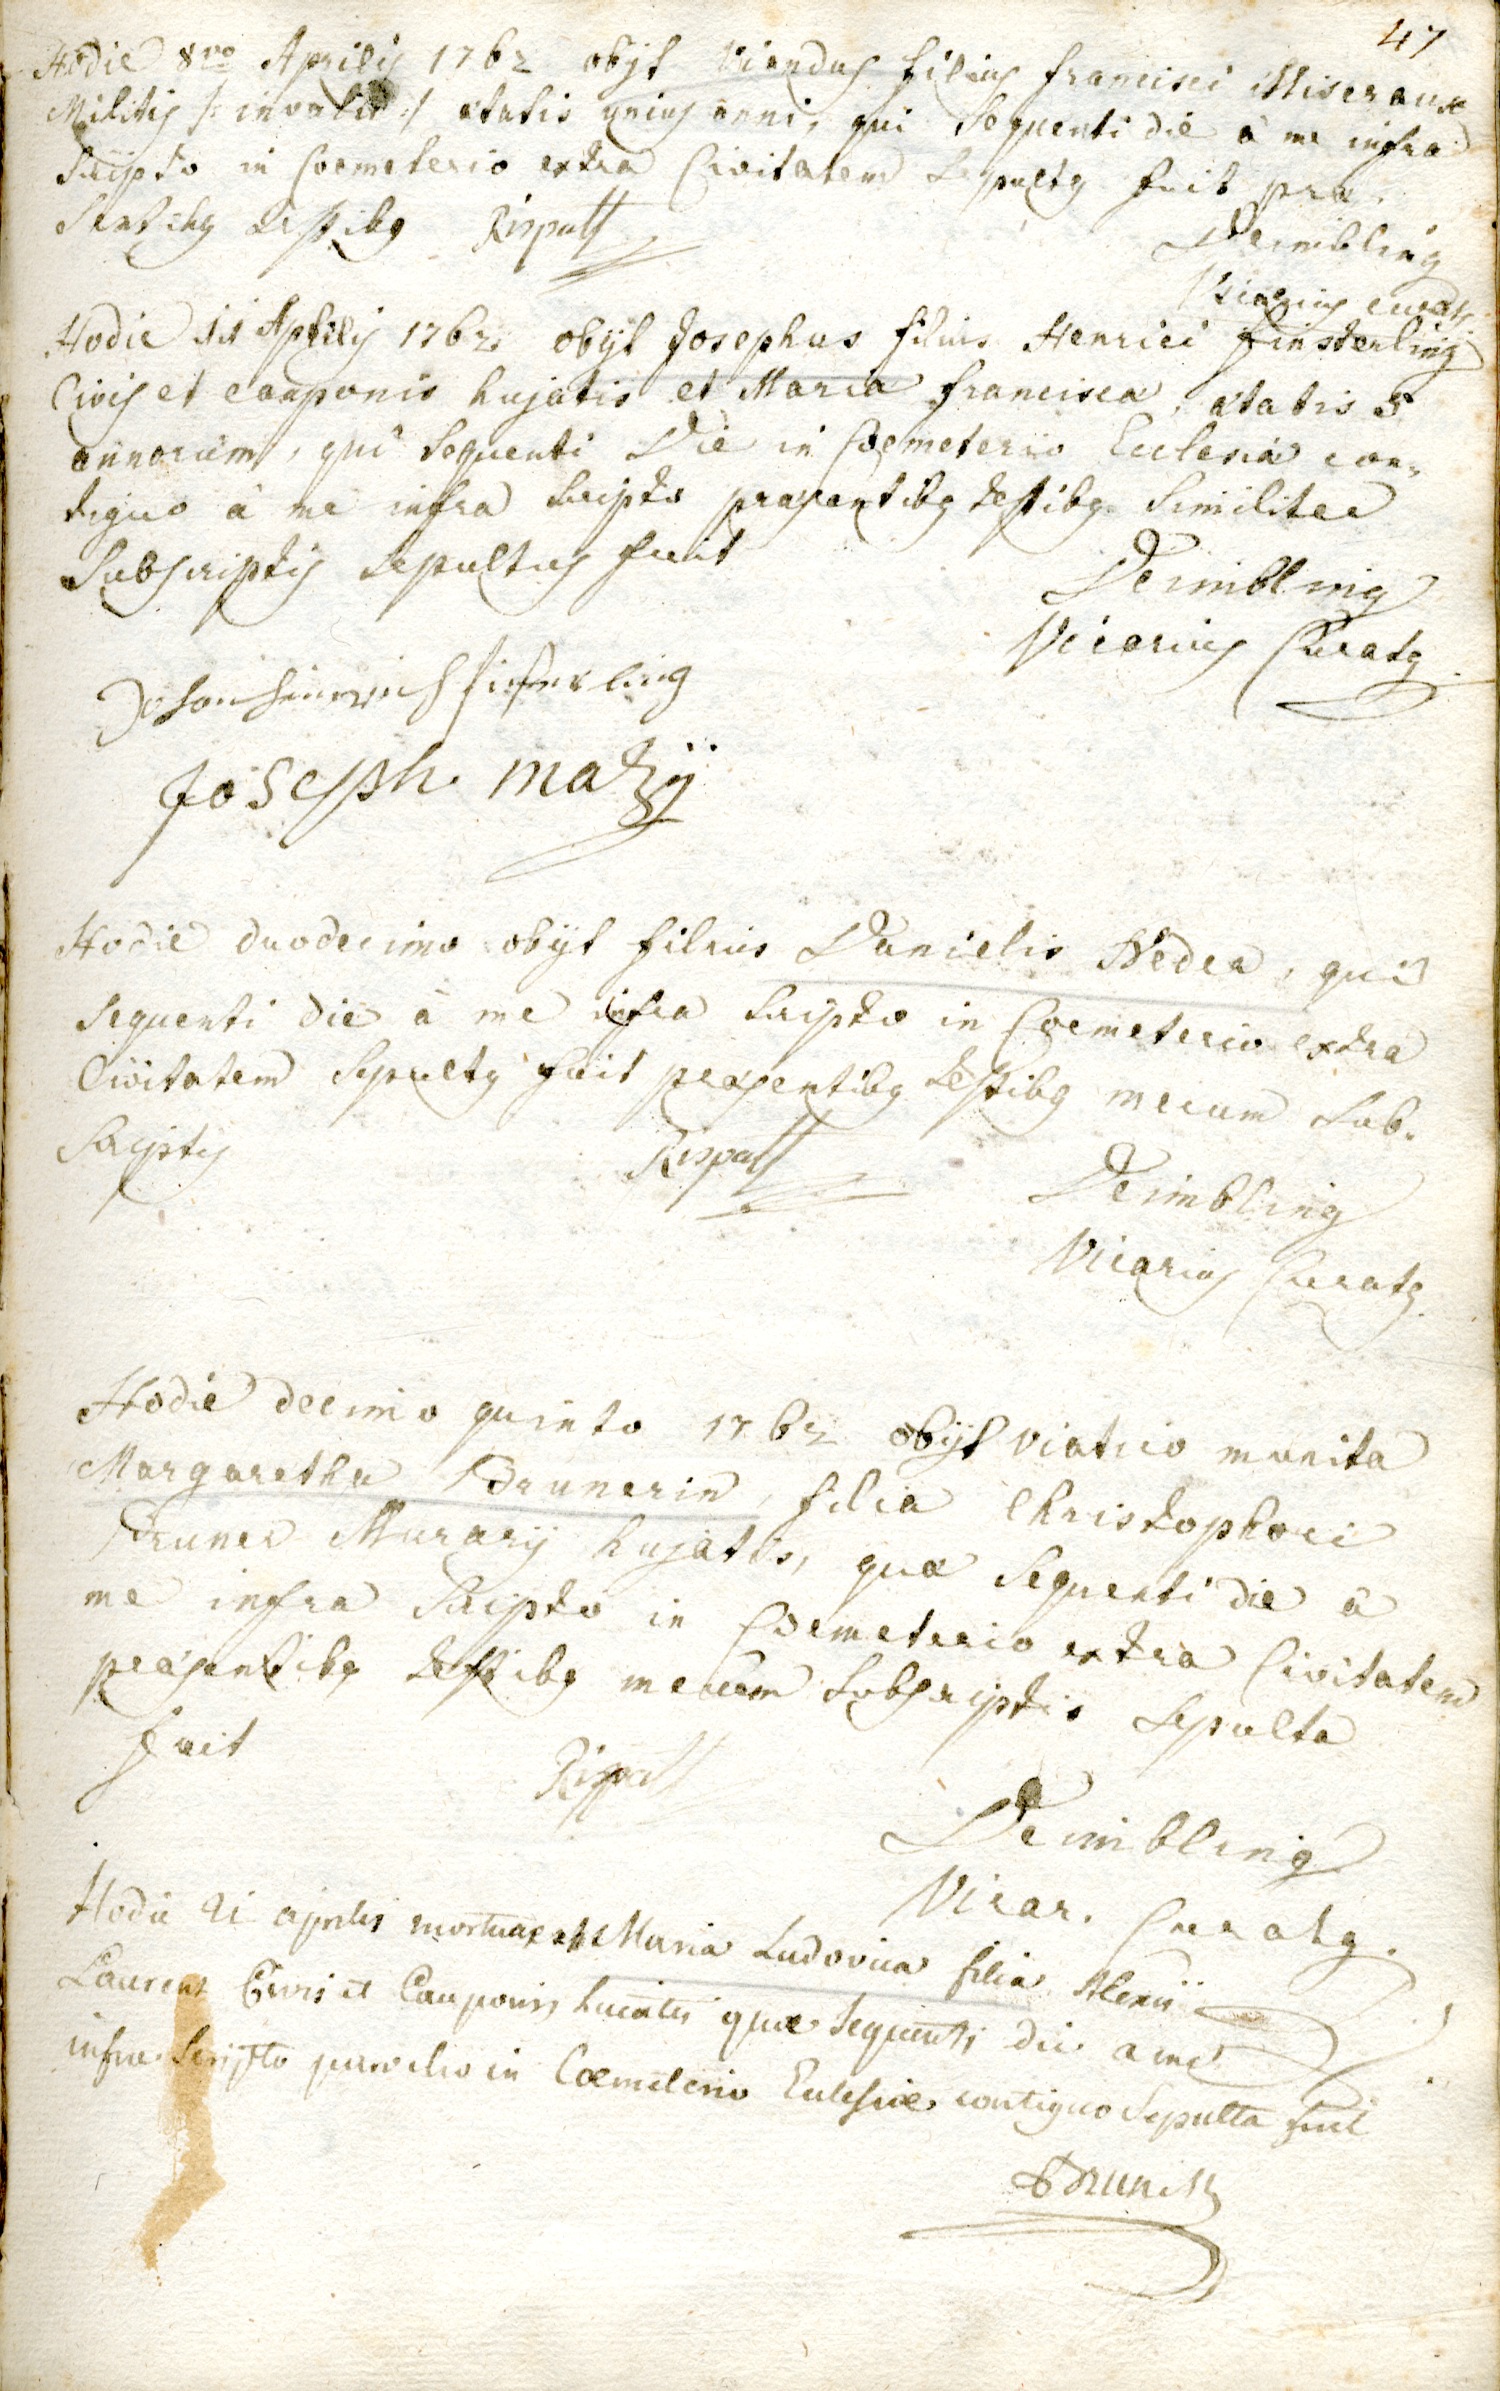 47
Hodie 8vo Aprilis 1762 obijt filius francisci
Militis /: invalid :/ ætatis unius anni, qui sequenti die à me infra
scripto in Coemeterio extra Civitatem sepultus fuit præ-
sentibus testibus Rispatt
Deimbling
Vicarius curatus
Hodie 11 Aprilis 1762 obijt Josephus filius Henrici finsterling
Civis et cauponis hujatis et Maria francisca, ætatis 5
annorum, qui sequenti Die in Coemeterio Ecclesiæ con-
tiguo à me infra scripto præsentibus testibus similiter
subscriptis sepultus fuit
Deimbling
Vicarius Curatus
Johan heinrich finsterling
Joseph matzÿ
Hodie duodecimo obijt filius Danielis Heder, qui
sequenti die à me infra scripto in Coemeterio extra
Civitatem sepultus fuit præsentibus testibus mecum sub-
scriptis
Rispatt
Deimbling
Vicarius Curatus
Hodie decimo quinto 1762 obijt viatico munita
Margaretha Brunerin, filia Christophori
Bruner Murarij hujatis, quæ sequenti die à
me infra scripto in Coemeterio extra Civitatem
præsentibus testibus mecum subscriptis sepulta
fuit
Rispatt
Deimbling
Vicar. Curatus.
Hodie 21 aprilis mortua est Maria Ludovica filia Alexii
Laurent Civis et Cauponis huiatis quæ sequenti die a me
infra scripto parocho in Coemeterio Ecclesiæ contiguo sepulta fuit